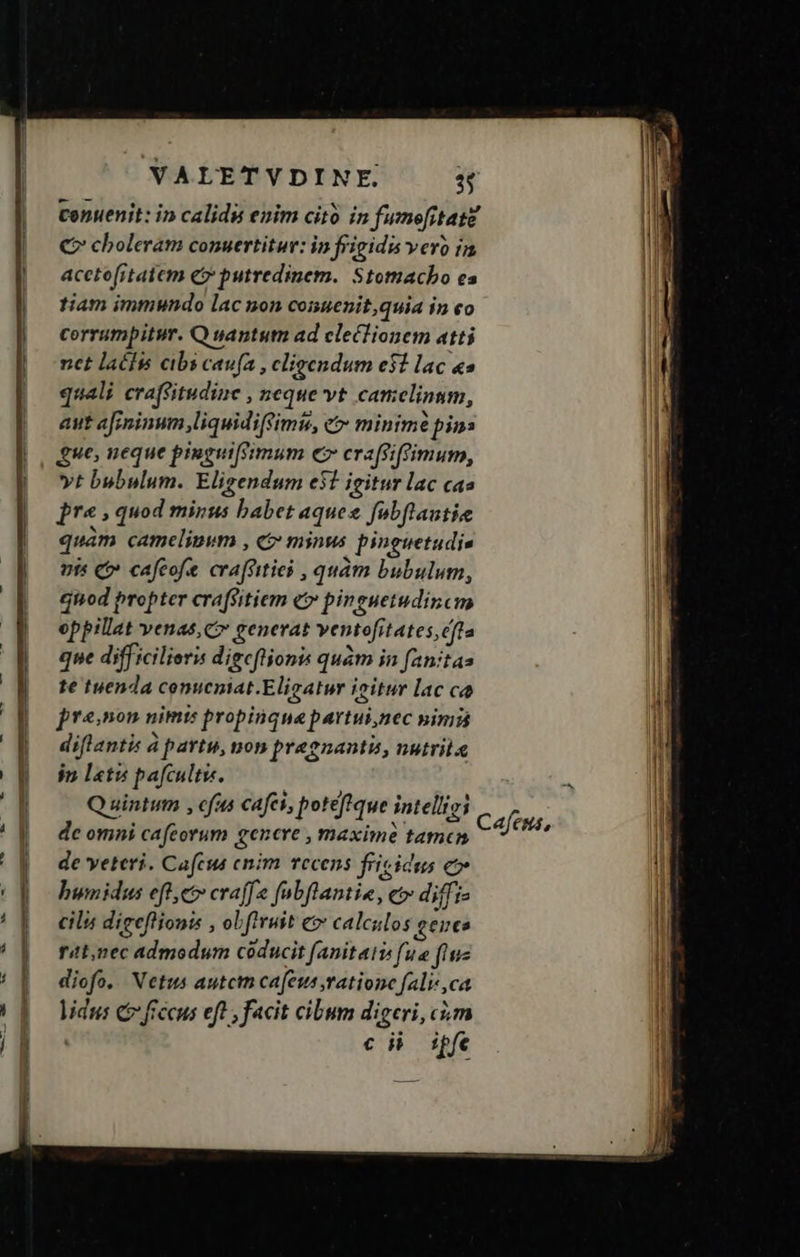 VALETVDINE. 35
conuenit: in calidis enim citò in fumositatē
& choleram conuertitur: in frigidis verò in
acetositatem & putredinem. Stomacho e=
tiam immundo lac non conuenit, quia in eo
corrumpitur. Quantum ad electionem atti
net lactis cibi causa, eligendum est lac æ=
quali crassitudine, neque vt camelinum,
aut asininum, liquidissimū, & minimè pin=
gue, neque pinguissimum & crassissimum,
vt bubulum. Eligendum est igitur lac ca=
præ, quod minus habet aqueæ substantiæ
quàm camelinum, & minus pinguetudi=
nis & caseosæ crassitiei, quàm bubulum,
quod propter crassitiem & pinguetudinem
oppillat venas, & generat ventositates, esta
que difficilioris digestionis quàm in sanita=
te tuenda conueniat. Eligatur igitur lac ca
præ, non nimis propinquæ partui, nec nimis
distantis à partu, non prægnantis, nutritæ
in lætis pascuis.
Quintum, esus casei, potestque intelligi
de omni caseorum genere, maximè tamen
Caseus,
de veteri. Caseus enim recens frigidus &
humidus est, & crassæ substantiæ, & diffi=
cilis digestionis, obstruit & calculos gene=
rat, nec admodum cōducit sanitatis suæ stu=
dioso. Vetus autem caseus, ratione salis, ca
lidus & siccus est, facit cibum digeri, cùm
c ii ipse